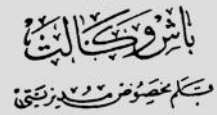 باش وكالت
قلم مخصوص مديريتى